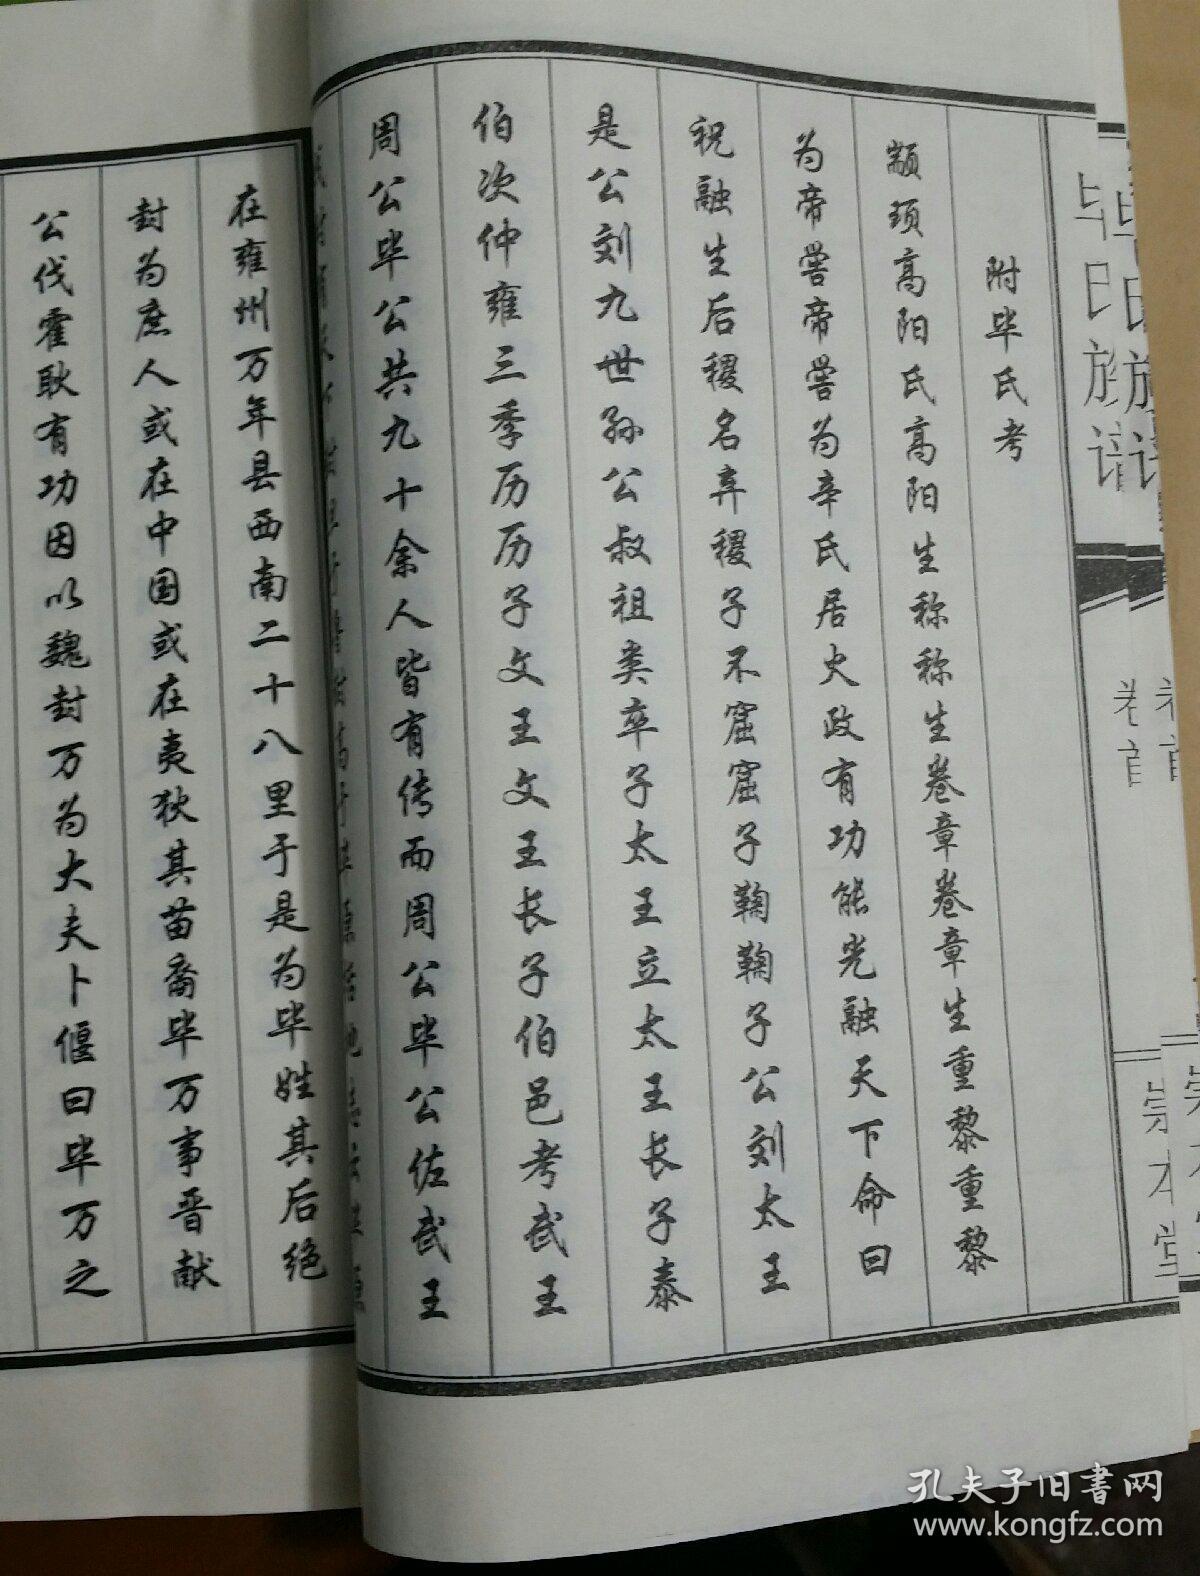 毕氏族谱
卷首
崇本堂
附毕氏考
颛顼高阳氏高阳生称称生卷章卷章生重黎重黎
为帝喾帝喾为辛氏居火政有功能光融天下命曰
祝融生后稷名弃稷子不窋窋子鞠鞠子公刘太王
是公刘九世孙公叔祖类卒子太王立太王长子泰
伯次仲雍三季历历子文王文王长子伯邑考武王
周公毕公共九十余人皆有传而周公毕公佐武王
在雍州万年县西南二十八里于是为毕姓其后绝
封为庶人或在中国或在夷狄其苗裔毕万事晋献
公伐霍耿有功因以魏封万为大夫卜偃曰毕万之
孔夫子旧书网
www.kongfz.com